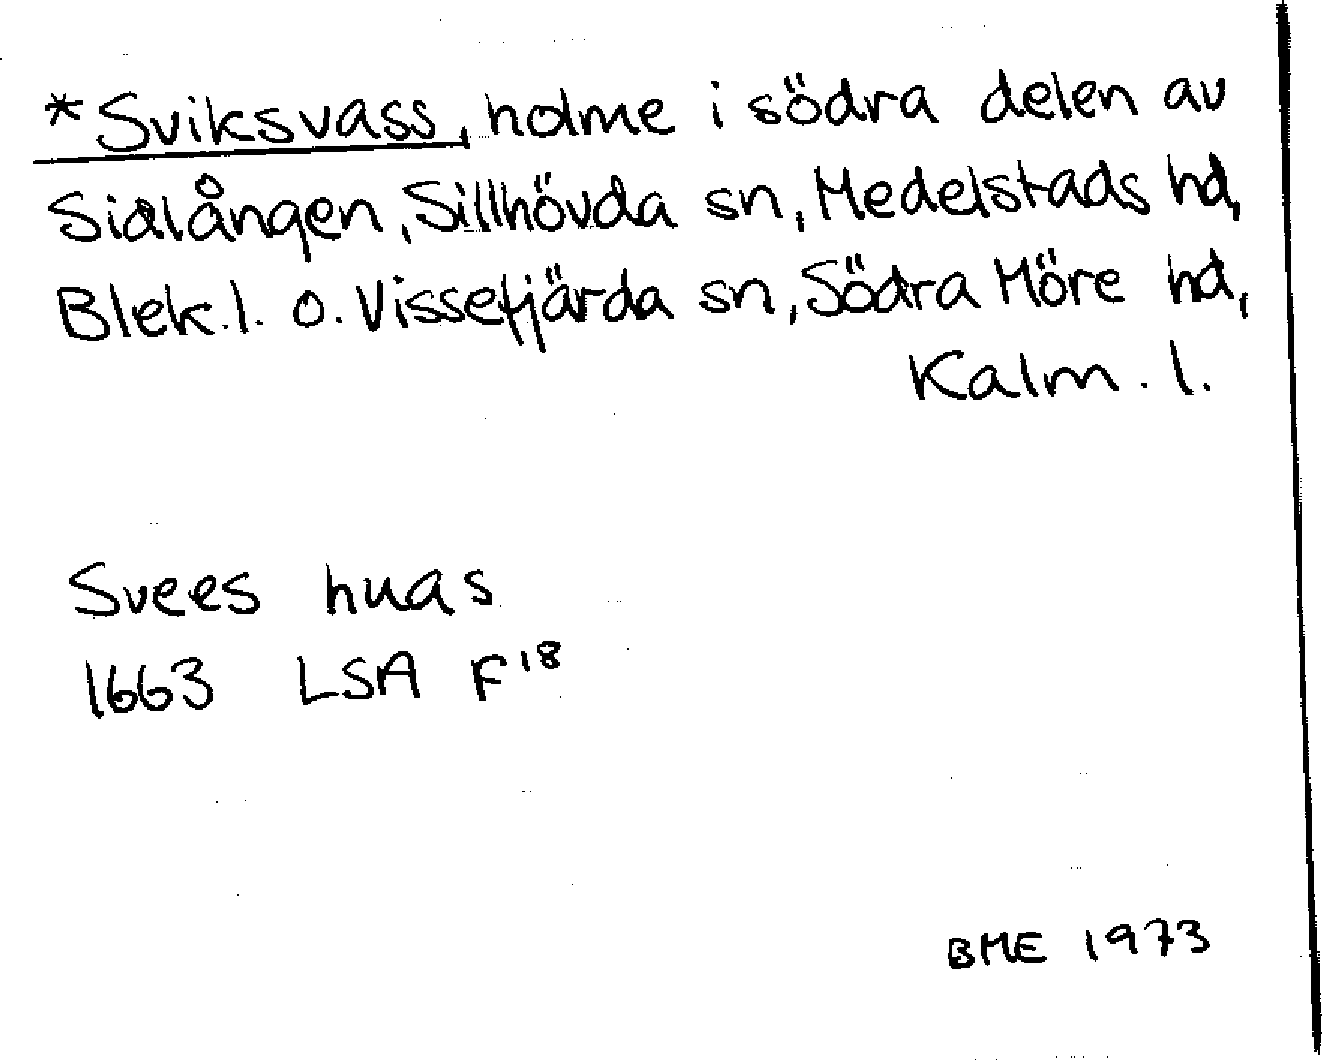 *Sviksvass, holme i södra delen av
Sidlången, Sillhövda sn, Medelstads hd,
Blek.l. o. Vissefjärda sn, Södra Möre hd,
Kalm.l.
Svees huas
1663 LSA F18
BME 1973